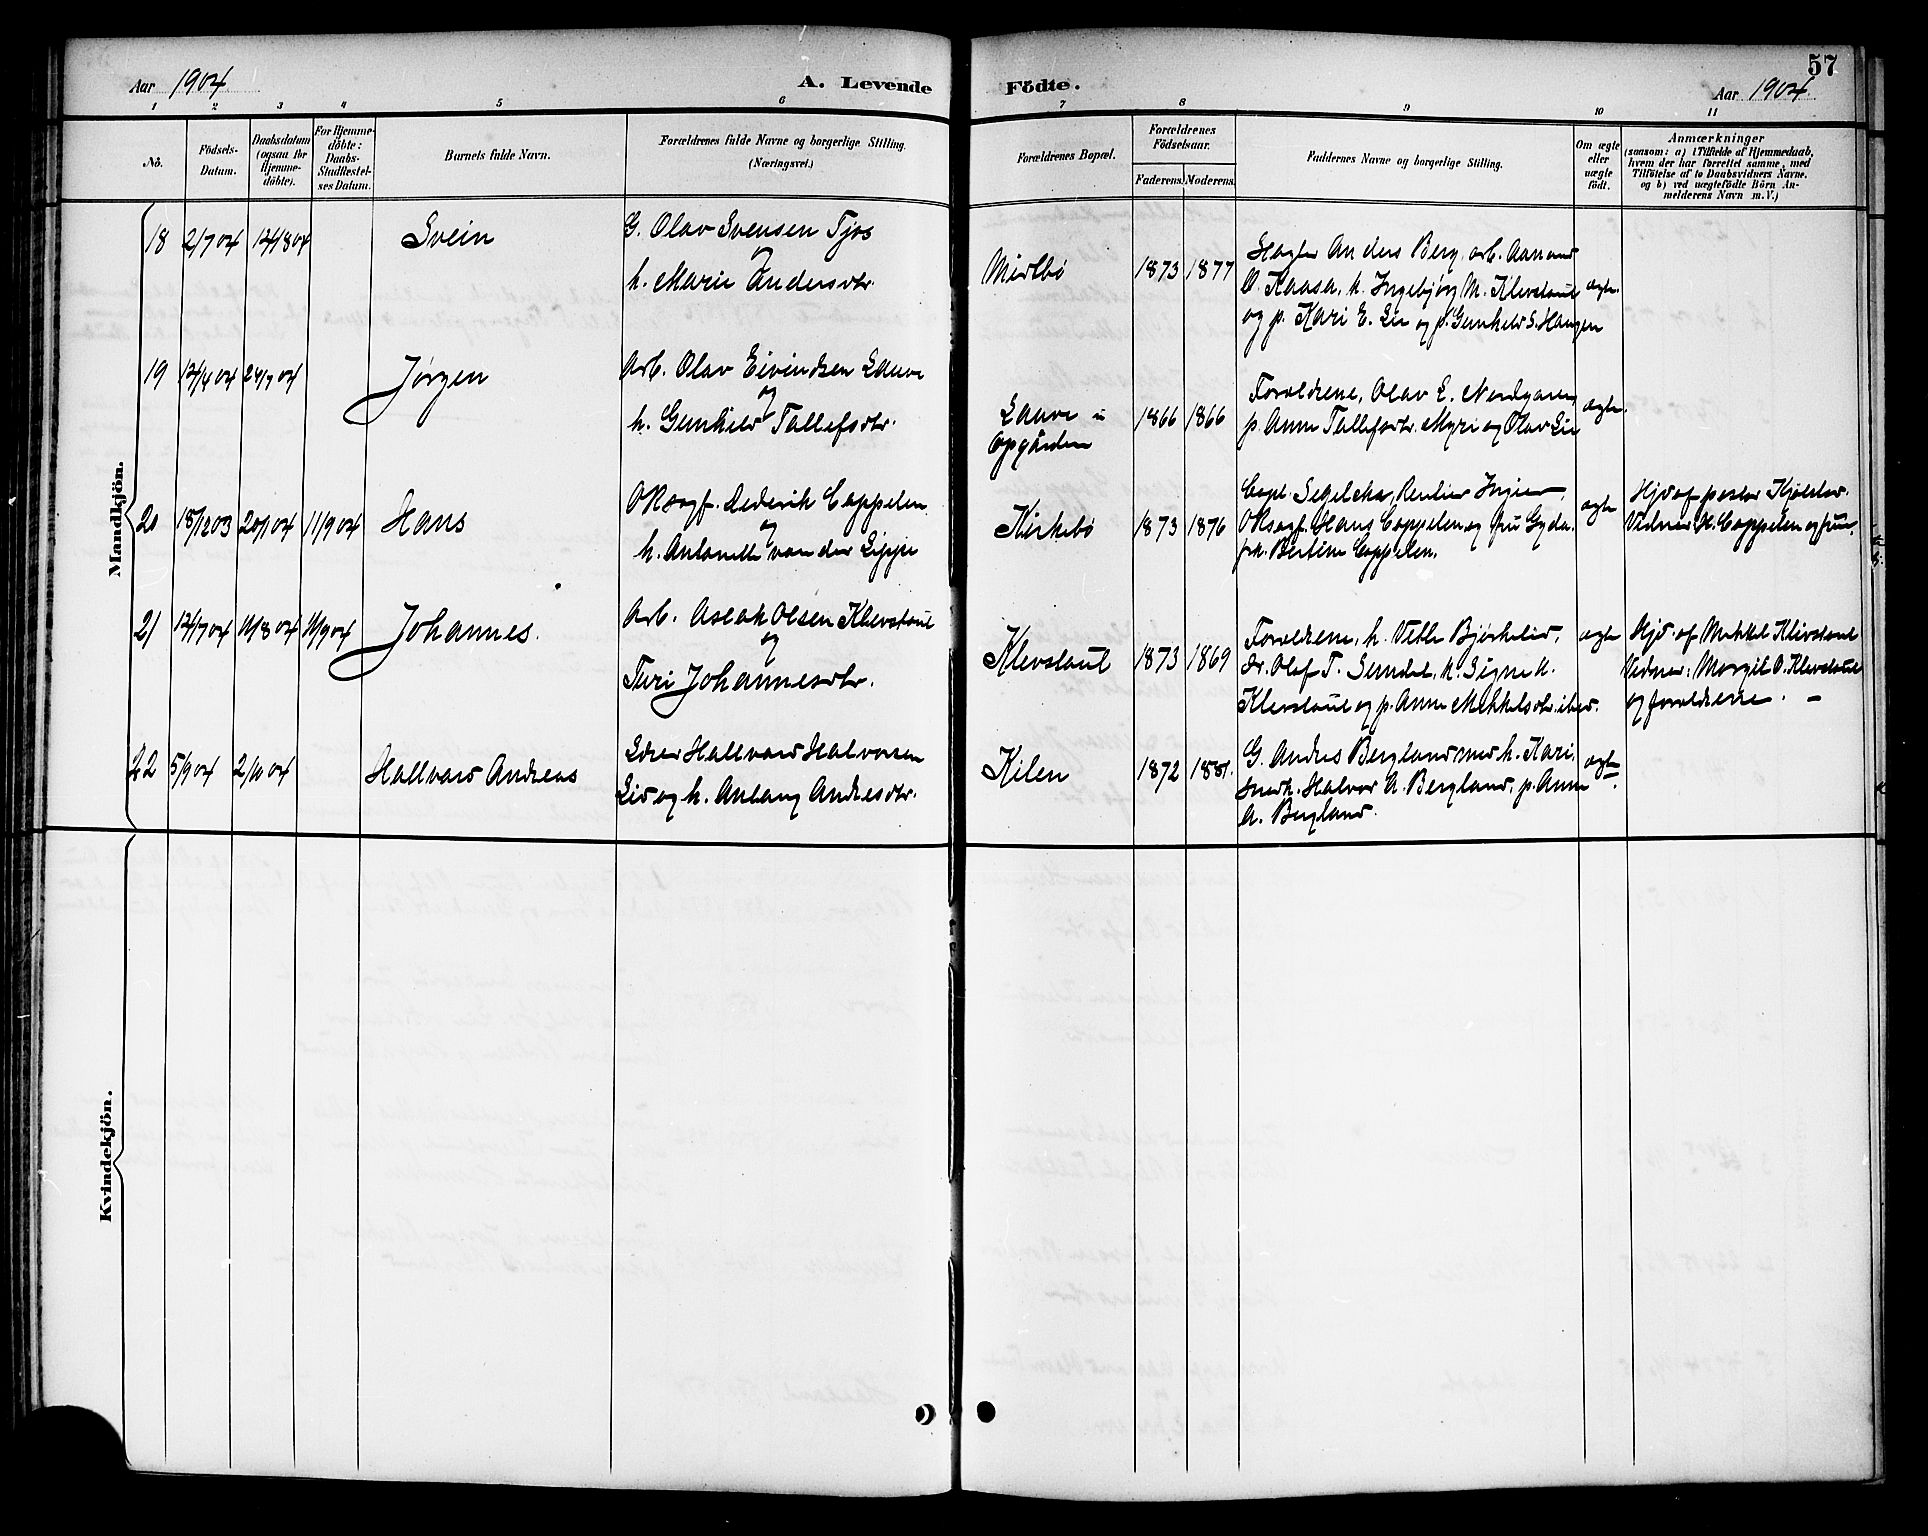 57
Aar 1904
A. Levende
Födte.
Aar 1904
1 2 3 4 5 6 7 8 9 10 11
No.
Födsels-
Datum.
Daabsdatum
(ogsaa for
Hjemme-
döbte).
For Hjemme-
döbte:
Daabs-
Stadfæstel-
ses Datum.
Barnets fulde Navn.
Forældrenes fulde Navne og borgerlige Stilling.
(Næringsvei.)
Forældrenes Bopæl.
Forældrenes
Födselsaar.
Faderens. Moderens.
Faddernes Navne og borgerlige Stilling.
Om ægte
eller
uægte
födt.
Anmærkninger
(saasom: a) i Tilfælde af Hjemmedaab,
hvem der har forrettet samme, med
Tilföielse af to Daabsvidners Navne.
og b) ved uægtefödte Börn An-
melderens Navn m. V.)
Mandkjön.
18 2/7 04 14/8 04 Svein
G. Olav Svensen Tjos
og
h. Marie Andersdtr.
Midtbö 1873 1877
Anders Berg, arb. Aanund
O. Kaasa, h. Ingebjørg M. Klevstaul
og p. Kari E. Lie og p. Gunhild S. Haugen
ægte.
19 14/4 04 24/7 04 Jörgen
Arb. Olav Eivindsen Laave
og
h. Gunhild Tallefsdtr.
Laave u
Opgården
1866 1866
Forældrene, Olav E. Nordgaren,
p. Anne Tallefsdtr. Myri og Olav Lie
ægte.
20 18/12 03 20/1 04 11/9 04 Hans
ORsagf. Dederik Cappelen
og
h. Antonette van der Lippe
Kirkebö 1873 1876
Capt. Segelcke, Rentier Ingier,
ORsagf. Hans Cappelen og fru Gyda.
frk. Bertine Cappelen.
ægte
Hjd af pastor
Vidner H. Cappelen og frue.
21 14/7 04 11/8 04 11/9 04 Johannes.
Arb. Aslak Olsen Klevstaul
og
Turi Johannesdtr.
Klevstaul 1873 1869
Forældrene, h. Vetle Bjørkelid,
dr. Olaf T. Sundet, h. Signe A.
Klevstaul og p. Anne Mikkelsdtr. ibid.
ægte
Hjd. af Mikkel Klevstaul
Vidner: Margit O. Klevstaul
og forældrene. —
22 5/9 04 2/10 04 Hallvard Andreas
Hallvard Halvorsen
Lid og h. Anlaug Andresdtr.
Kilen 1872 1881.
G. Andres Bergland med h. Kari,
snedk. Halvor A. Bergland, p. Anne
A. Bergland.
ægte.
Kvindekjön.